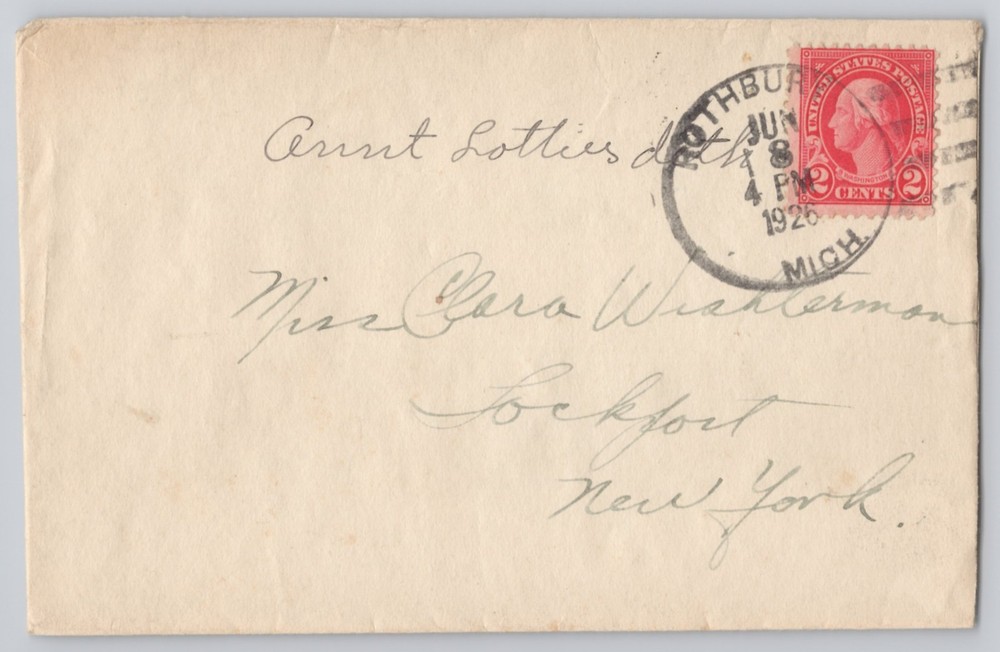 Aunt Lotties deth
ROTHBURY
JUN
8
4 PM
1926
MICH.
UNITED STATES POSTAGE
WASHINGTON
2 CENTS 2
Miss Clara Wishterman
Lockport
New York.